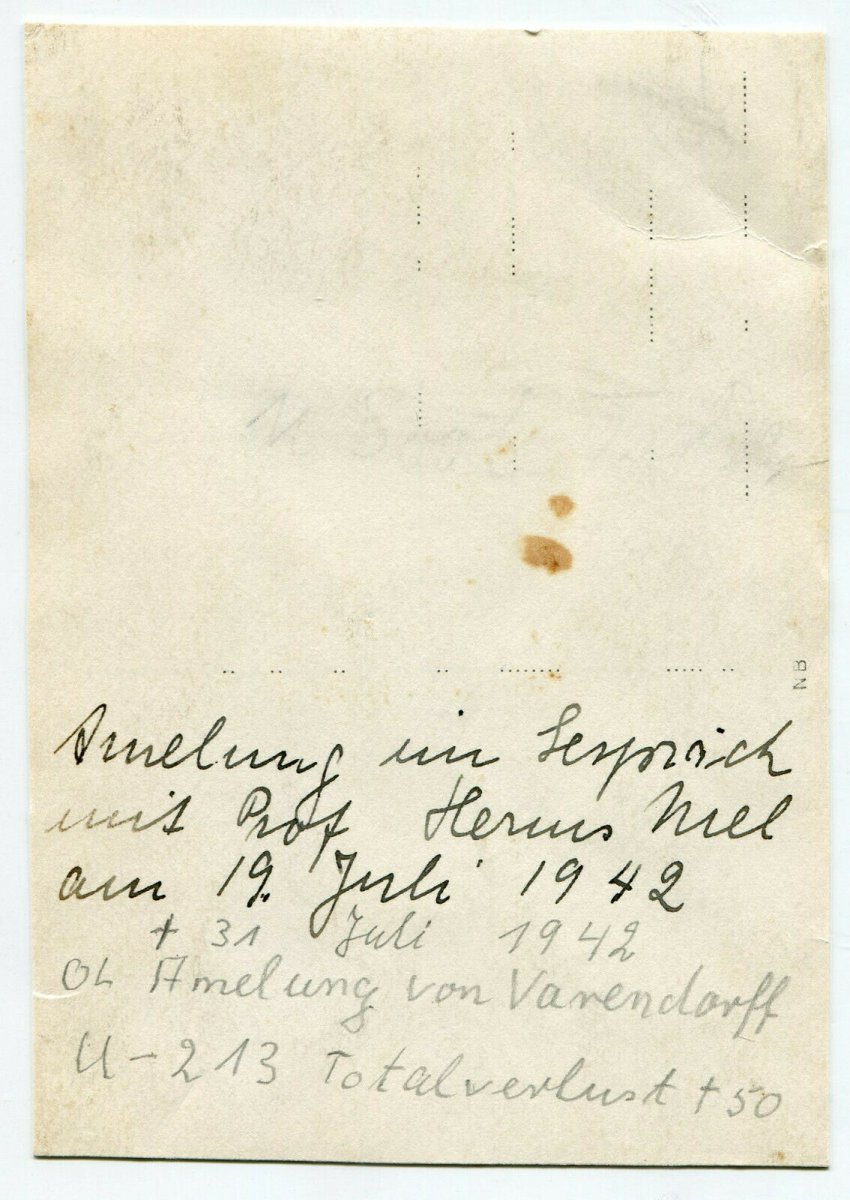 NB
Amelung im Gespräch
mit Prof Herms Niel
am 19. Juli 1942
+ 31 Juli 1942
OL Amelung von Varendorff
U-213 Totalverlust + 50